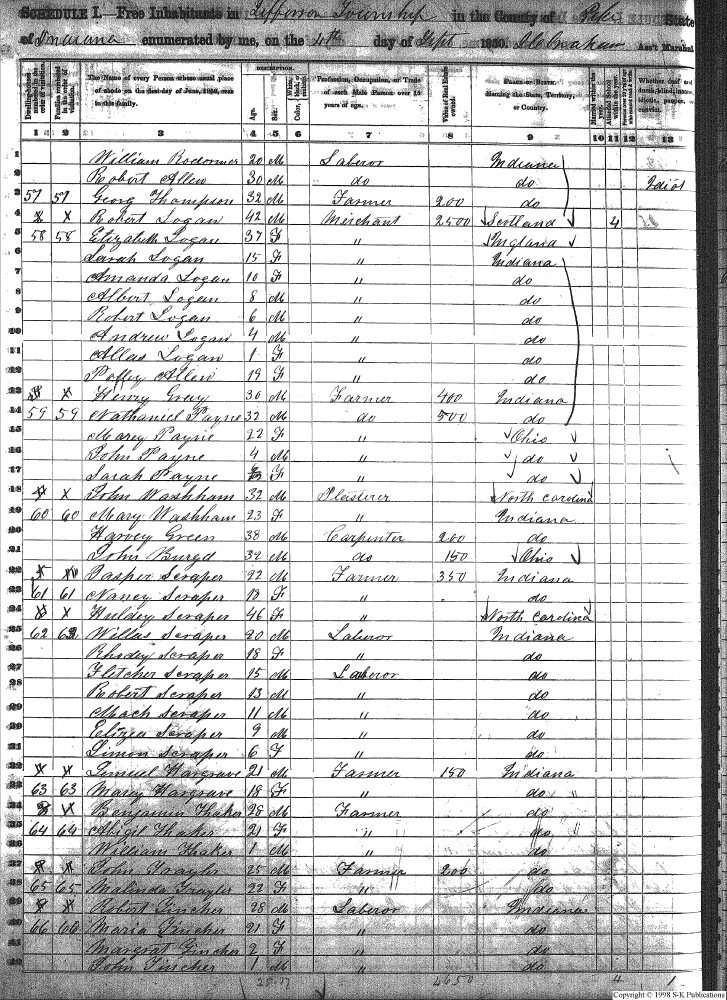 SCHEDULE I.—Free Inhabitants in Jefferson Township in the County of Pike State
of Indiana enumerated by me, on the 4th day of Sept 1850. Ass't Marshal
DESCRIPTION.
Dwelling-houses numbered in the order of visitation.
Families numbered in the order of visitation.
The Name of every Person whose usual place of abode on the first day of June, 1850, was in this family.
Age.
Sex.
Color,
Profession, Occupation, or Trade of each Male Person over 15 years of age.
Value of Real Estate owned.
Place of Birth. Naming the State, Territory, or Country.
Married within the year.
Whether deaf and dumb, blind, insane, idiotic, pauper, or convict.
1 2 3 4 5 6 7 8 9 10 11 12 13
1 William Rodormer 20 M Laberor Indiana
2 Robert Allen 30 M do do Idiot
3 57 57 Georg Thompson 32 M Farmer 200 do
4 x x Robert Logan 42 M Merchant 2500 Scotland 4
5 58 58 Elizabeth Logan 37 F " England
6 Sarah Logan 15 F " Indiana
7 Amanda Logan 10 F " do
8 Albert Logan 8 M " do
9 Robert Logan 6 M " do
10 Andrew Logan 4 M " do
11 Allas Logan 1 F " do
12 Polley Allen 19 F " do
13 x Henry Gray 30 M Farmer 400 Indiana
14 59 59 Nathaniel Payne 32 M do 500 do
15 Marey Payne 22 F " Ohio
16 John Payne 4 M " do
17 Sarah Payne F " do
18 x x John Washham 32 M Plasterer North Carolina
19 60 60 Mary Washham 23 F " Indiana
20 Harvey Green 38 M Carpenter 200 do
21 John Burgd 32 M do 150 Ohio
22 x x Jasper Scraper 22 M Farmer 350 Indiana
23 61 61 Nancy Scraper 18 F " do
24 x x Huldey Scraper 46 F " North Carolina
25 62 62 Willas Scraper 20 M Laberor Indiana
26 Rhodey Scraper 18 F " do
27 Fletcher Scraper 15 M Laberor do
28 Robert Scraper 13 M " do
29 Mach Scraper 11 M " do
Eliza Scraper 9 M " do
Simon Scraper 6 F " do
x x Lemuel Hargrave 21 M Farmer 150 Indiana
63 63 Marey Hargrave 18 F " do "
x x Benjamin Thaker 28 M Farmer do
64 64 Abigil Thaker 21 F " do "
William Thaker 1 M " do
x x John Traylor 25 M Farmer 200 do
65 65 Malinda Traylor 22 F " do
x x Robert Fincher 28 M Laberor Indiana
66 66 Maria Fincher 21 F " do
Margrat Fincher 2 F " do
John Fincher 1 M " do
4650 4 1
Copyright © 1998 S-K Publications